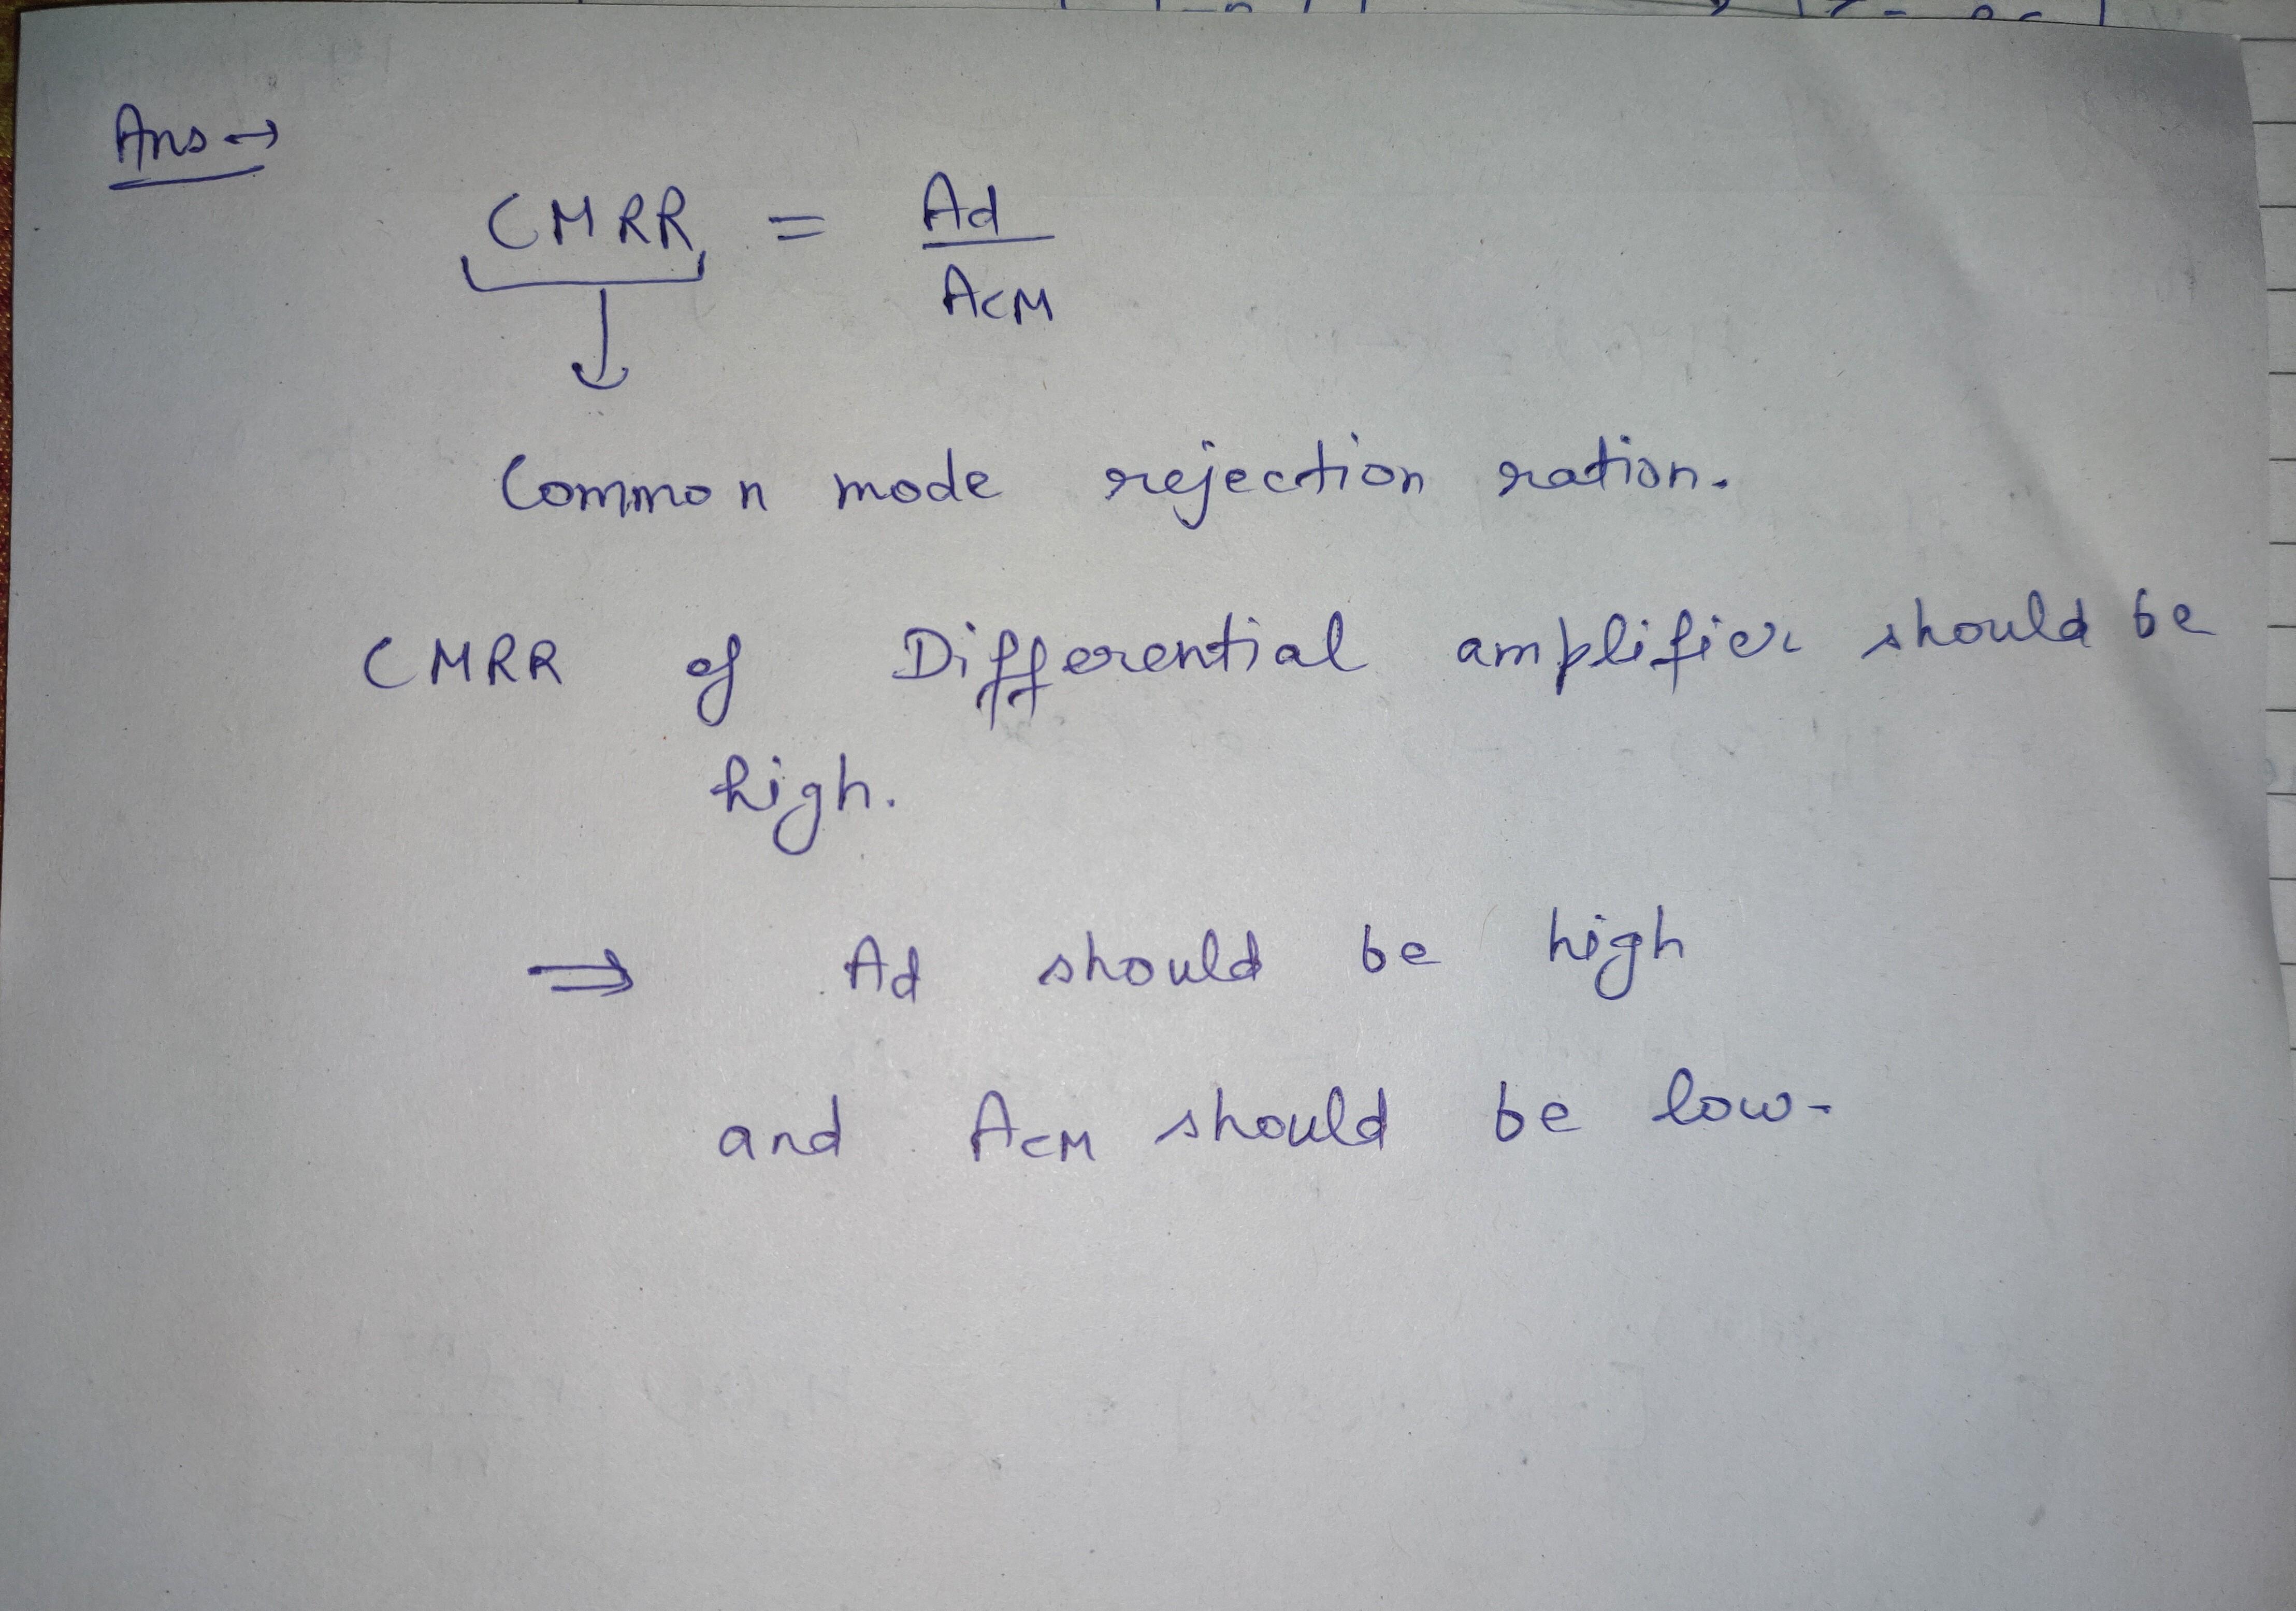 Ans →
CMRR = Ad
ACM
Common mode rejection ration.
CMRR of Differential amplifier should be
high.
⇒ Ad should be high
and ACM should be low.